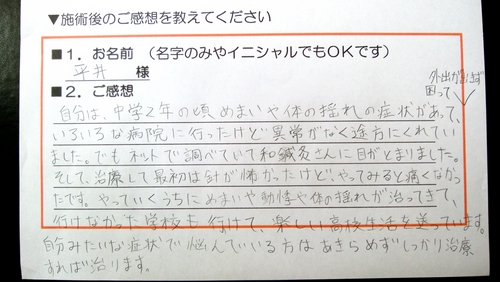 ▼施術後のご感想を教えてください
■1．お名前　（名字のみやイニシャルでもOKです）
平井　様
■2．ご感想
外出ができず
困って
自分は、中学2年の頃めまいや体の揺れの症状があって、
いろいろな病院に行ったけど異常がなく途方にくれてい
ました。でもネットで調べていて和鍼灸さんに目がとまりました。
そして、治療して最初は針が怖かったけど、やってみると痛くなかっ
たです。やっていくうちにめまいや動悸や体の揺れが治ってきて、
行けなかった学校も行けて、楽しい高校生活を送っています。
自分みたいな症状で悩んでいる方はあきらめずしっかり治療
すれば治ります。